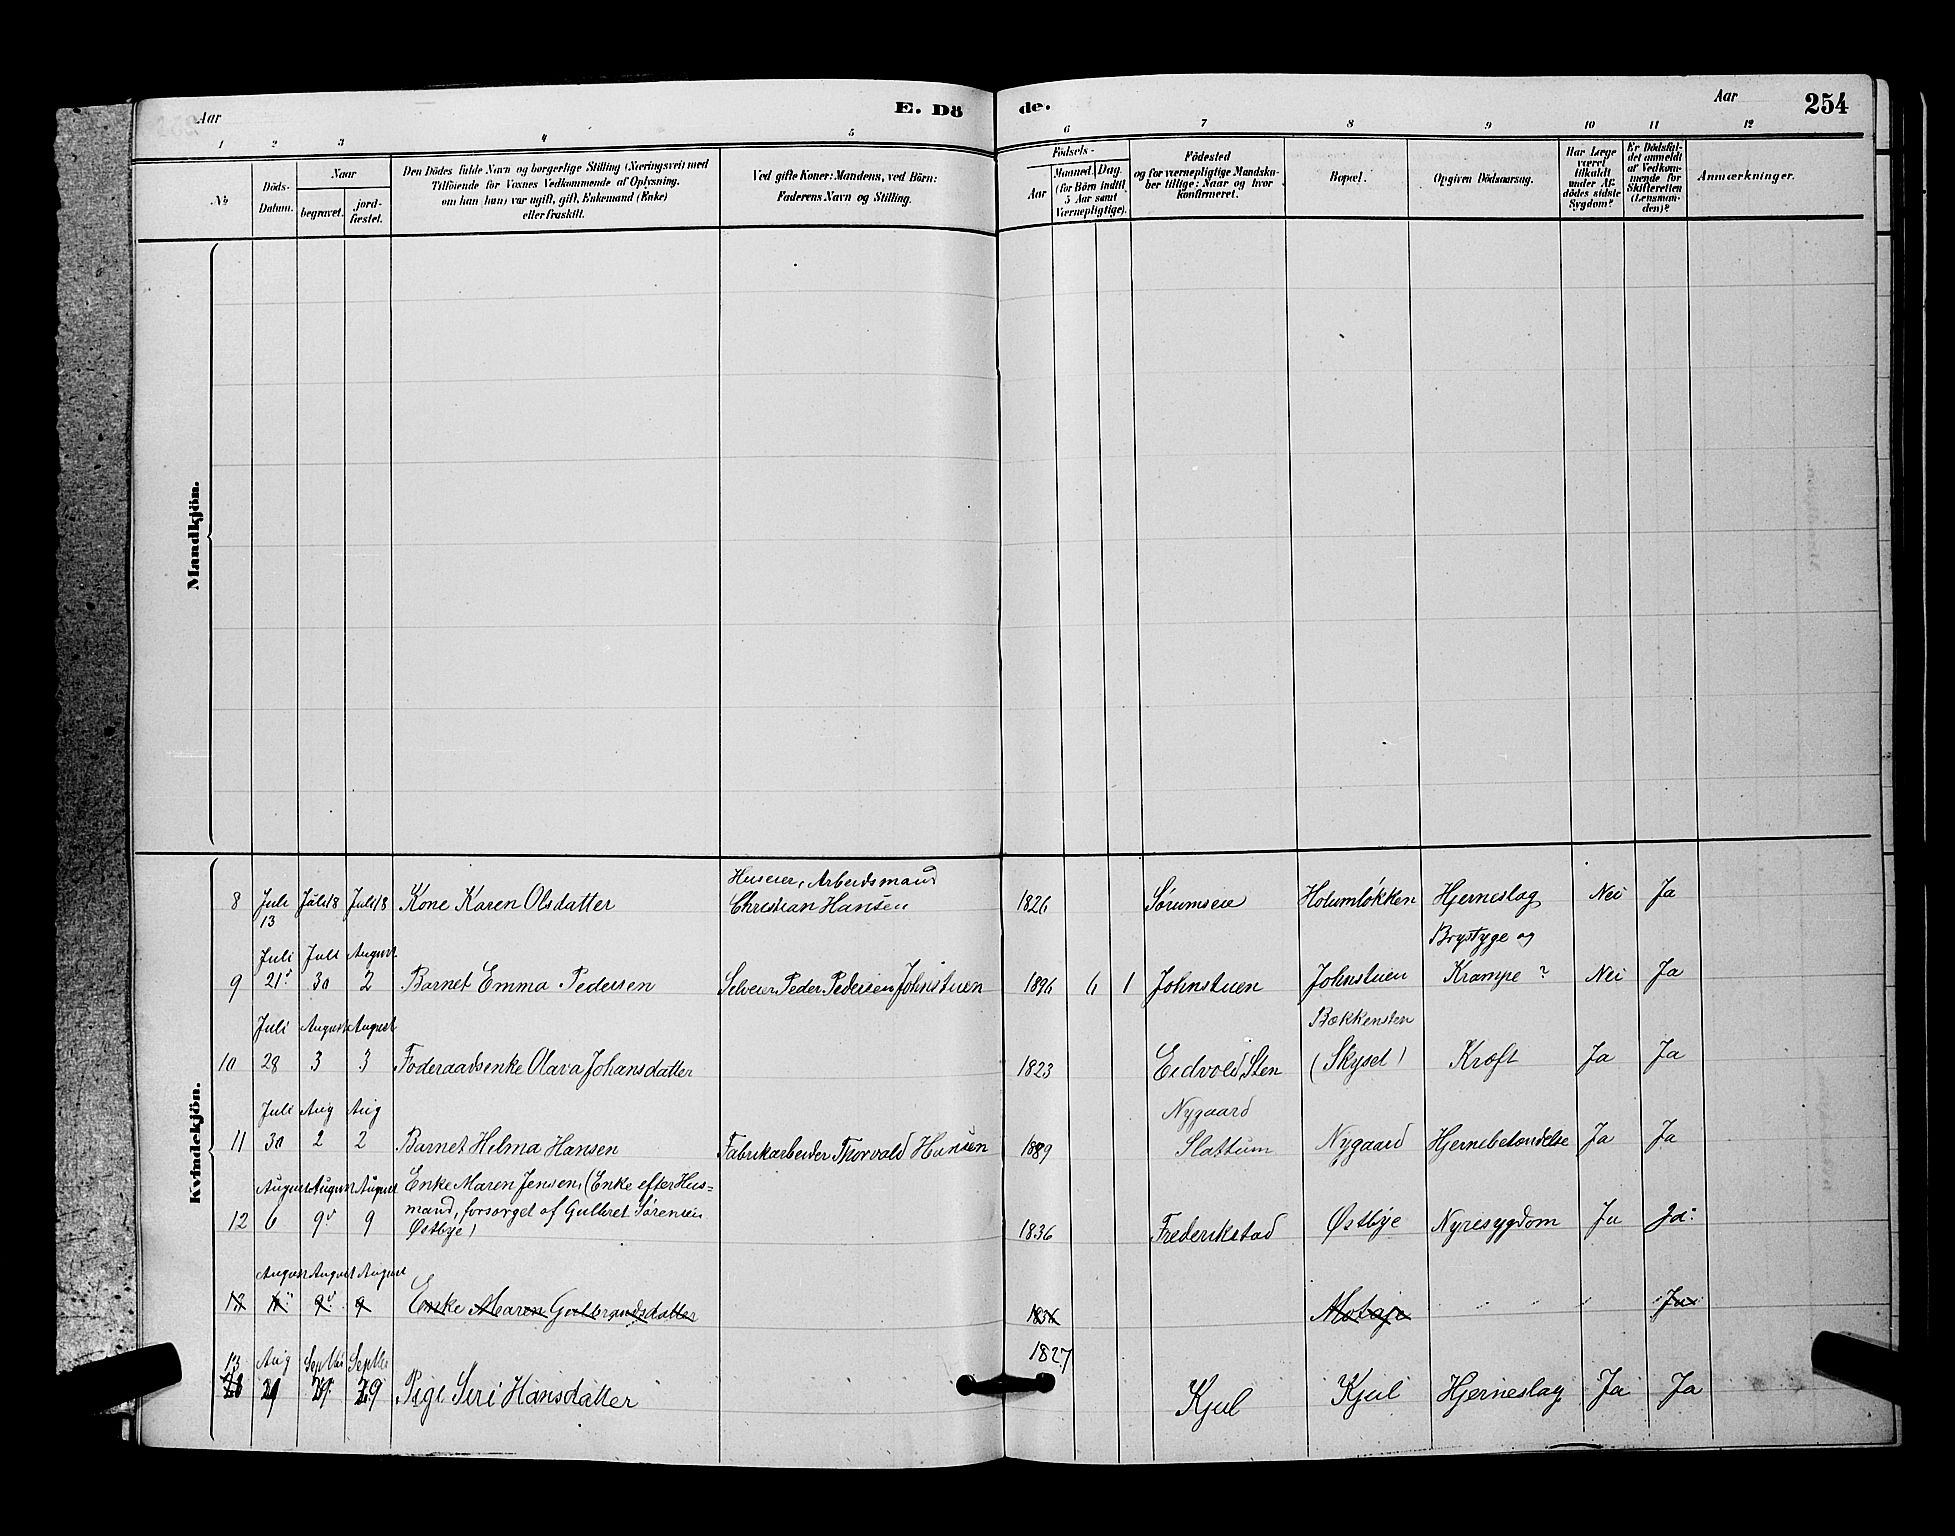 Aar
E. Dö
de.
Aar
254
1 2 3 4 5 6 7 8 9 10 11 12
No
Döds-
Datum.
Naar
begravet.
jord-
fæstet.
Den Dödes fulde Navn og borgerlige Stilling (Næringsvei) med
Tilföiende for Voxnes Vedkommende af Oplysning,
om han (hun) var ugift, gift, Enkemand (Enke)
eller fraskilt.
Ved gifte Koner: Mandens, ved Börn:
Faderens Navn og Stilling.
Födsels-
Aar
Maaned. Dag.
(for Börn indtil
5 Aar samt
Værnepligtige).
Födested
og for værnepligtige Mandska-
ber tillige: Naar og hvor
konfirmeret.
Bopæl.
Opgiven Dödsaarsag.
Har Læge
været
tilkaldt
under Af-
dödes sidste
Sygdom?
Er Dödsfal-
det anmeldt
af Vedkom-
mende for
Skifteretten
(Lensman-
den)?
Anmærkninger.
Mandkjön.
Kvindekjön.
Huseier, Arbeidsmand
8 Juli Juli 18 Juli 18 Kone Karen Olsdatter Christian Hansen 1826 Sørumseie Holumløkken Hjerneslag Nei Ja
13
Juli Juli August Brystsyge og
9 21 30 2 Barnet Emma Pedersen Selveier Peder Pedersen Johnstuen 1896 6 1 Johnstuen Johnstuen Krampe ? Nei Ja
Juli August August Bækkensten
10 28 3 3 Føderaadsenke Olava Johansdatter 1823 Eidvold, Sten (Skyset) Kræft Ja Ja
Juli Aug Aug Nygaard
11 30 2 2 Barnet Hilma Hansen Fabrikarbeider Thorvald Hansen 1889 Slattum Nygaard Hjernebetændelse Ja Ja
August August August Enke Maren Jensen, (Enke efter Hus=
mand, forsørget af Gulbret Sørensen
12 6 9 9 Østbye) 1836 Frederikstad Østbye Nyresygdom Ja Ja
August August August
13 9 9 Enke Maren Gulbrandsdatter 1836 Ja
13 Aug Septbr Septbr 1827
29 29 Pige Siri Hansdatter Kjul Kjul Hjerneslag Ja Ja